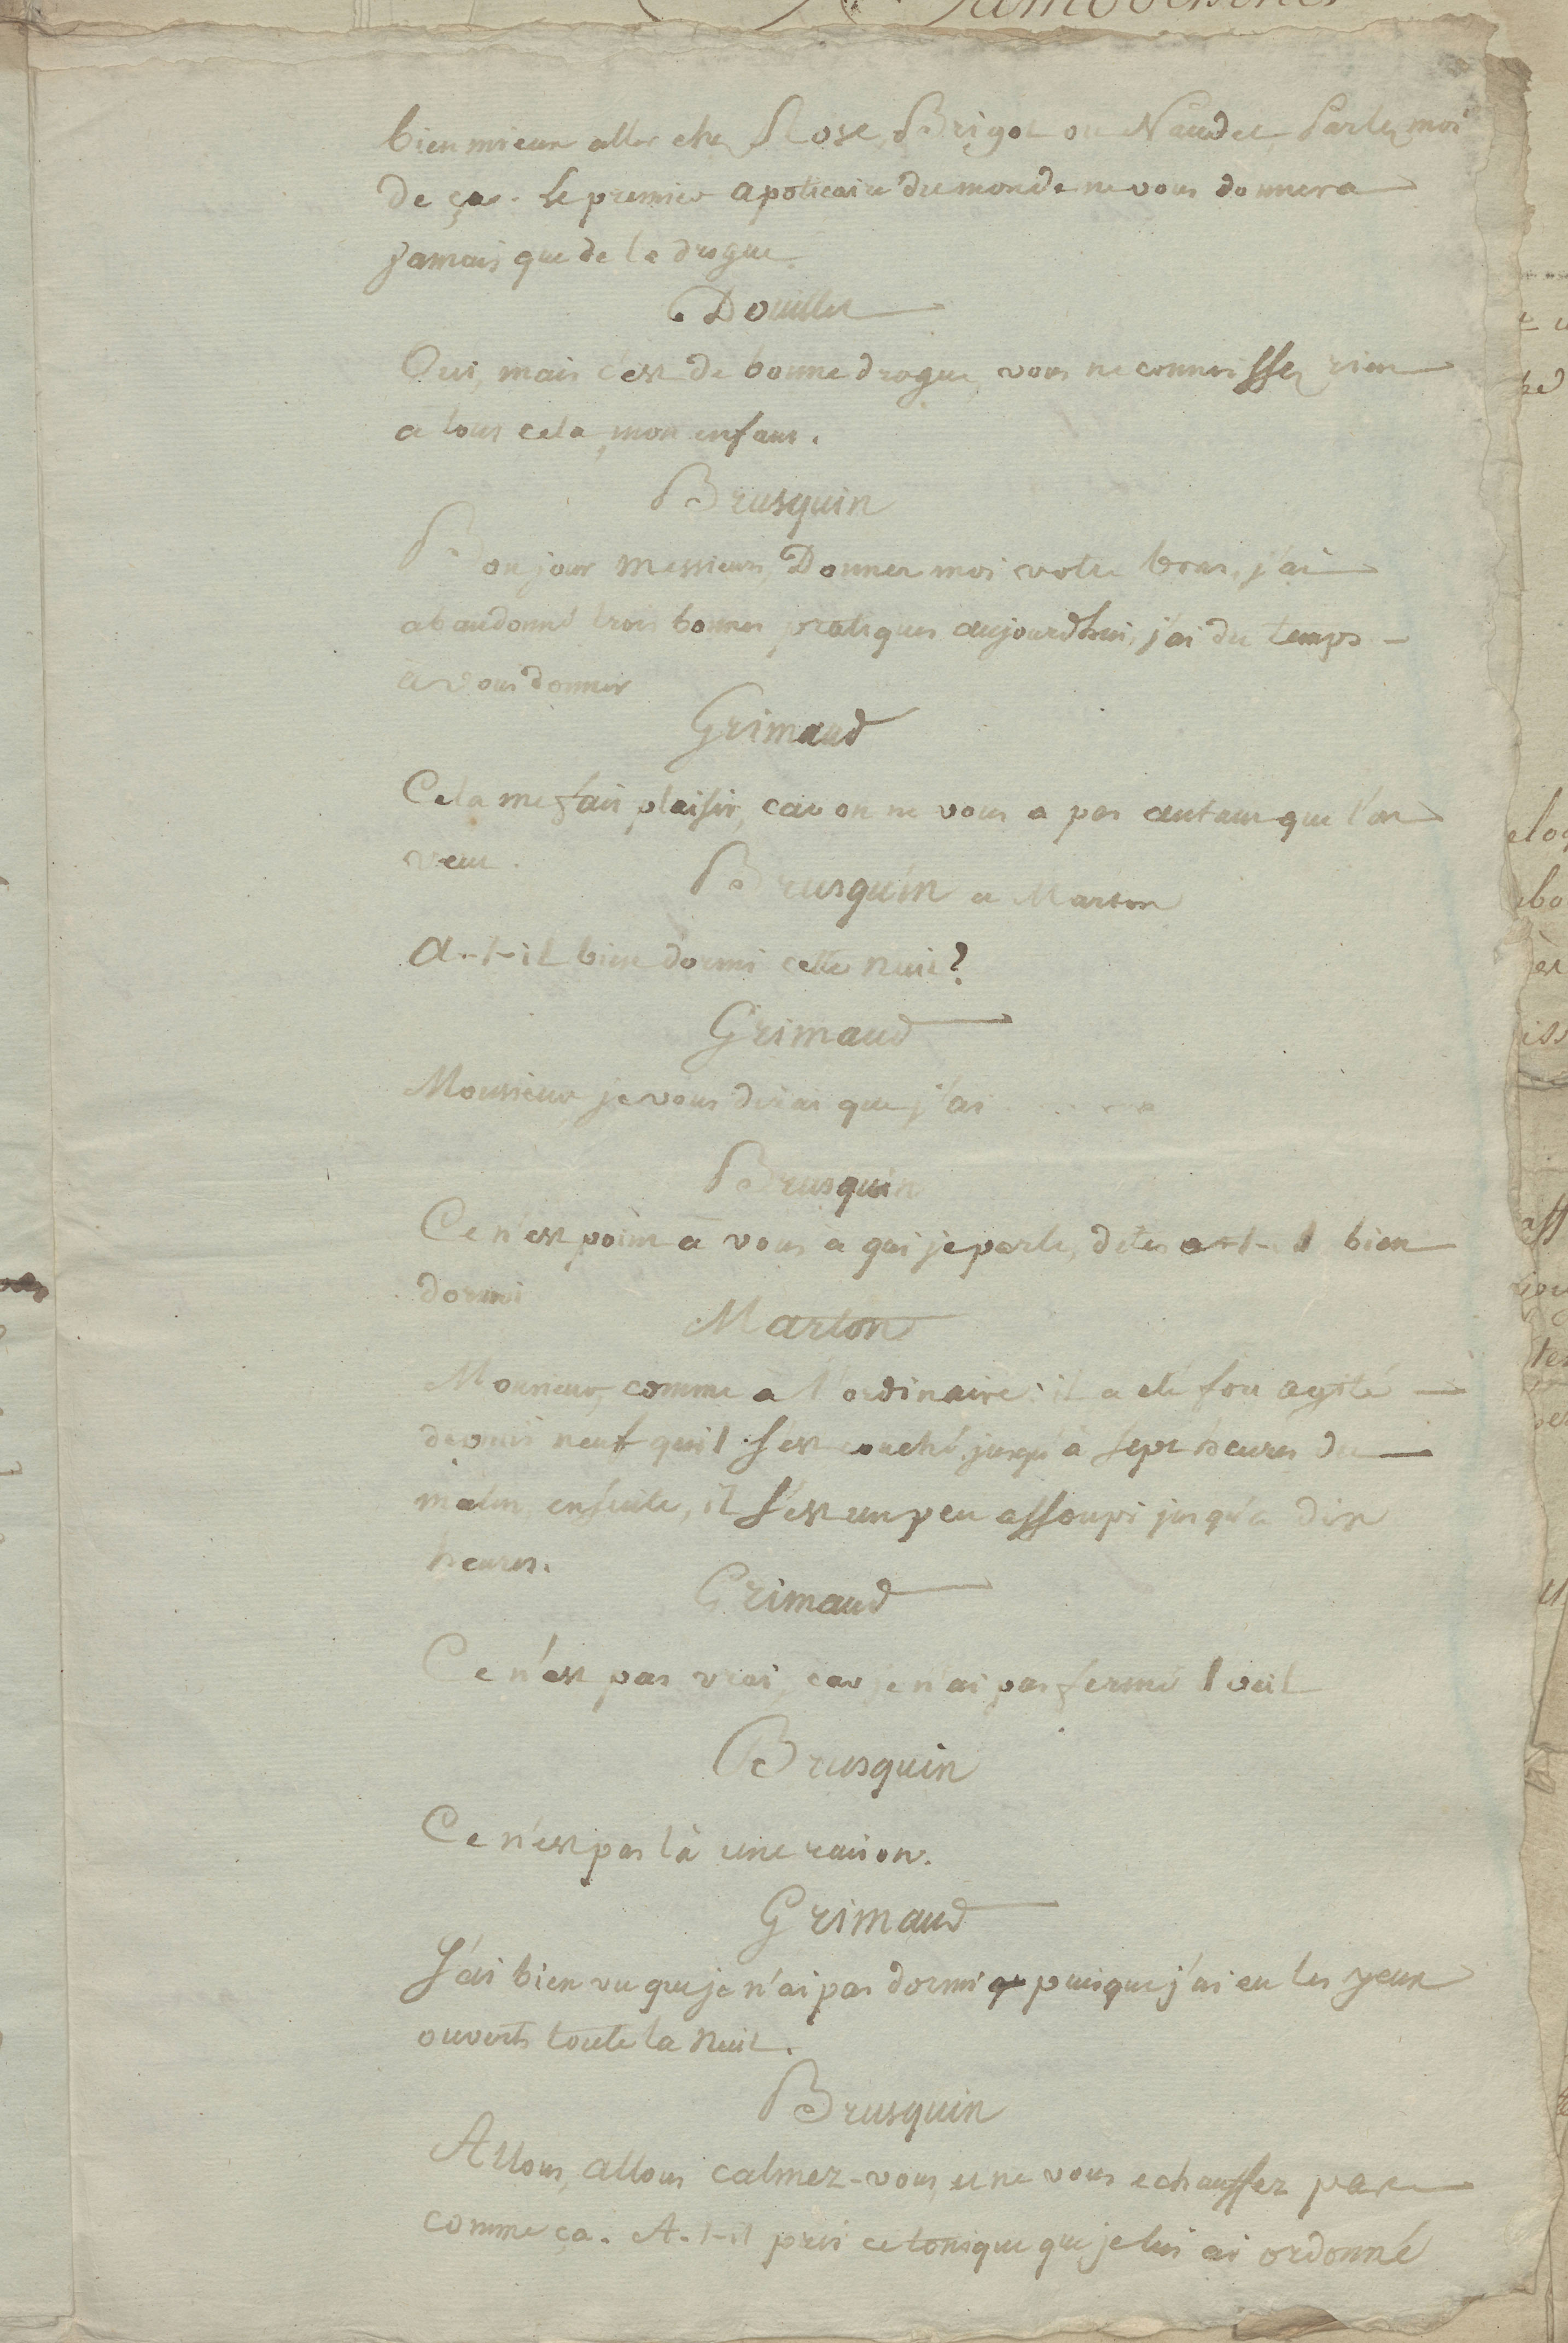 bien mieux aller chez Rose, Brigot ou Naudet Parlez moi
de ça. Le premier apoticaire du monde ne vous donnera
jamais que de la drogue.
Douillet
Oui, mais c'est de bonne drogue, vous ne connoissez rien
a tout cela, mon enfant.
Brusquin
Bonjour messieurs, Donnez moi votre bras, j'ai
abandonné trois bonnes pratiques aujourd'hui, j'ai du temps
à vous donner
Grimaud
Cela me fait plaisir, car on ne vous a pas autant que l'on
veut.
Brusquin a Marton
A-t-il bien dormi cette nuit?
Grimaud
Monsieur je vous dirai que j'ai . . . . .
Brusquin
Ce n'est point a vous a qui je parle, dites a-t-il bien
dormi
Marton
Monsieur, comme a l'ordinaire: il a été fort agité
depuis neuf qu'il s'est couché, jusqu'à sept heures du
matin ensuite, il s'est un peu assoupi jusqu'a dix
heures.
Grimaud
Ce n'est pas vrai, car je n'ai pas fermé l'oeil
Brusquin
Ce n'est pas là une raison.
Grimaud
J'ai bien vu que je n'ai pas dormi puisque j'ai eu les yeux
ouverts toute la nuit.
Brusquin
Allons, allons calmez-vous, et ne vous echauffez pas
comme ça. A-t-il pris ce tonique que je lui ai ordonné